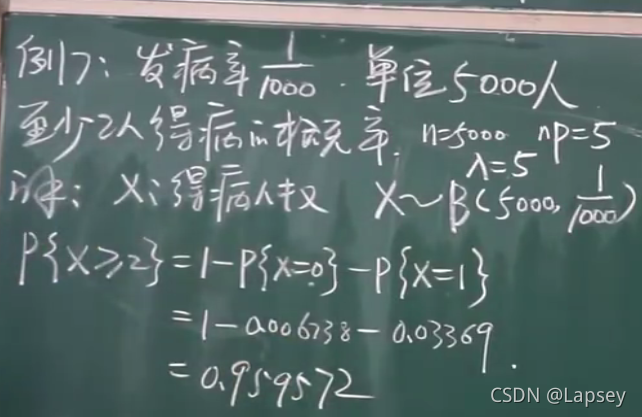 例17: 发病率 1/1000 . 单位5000人
至少2人得病的概率. n=5000 np=5
λ=5
解: X: 得病人数 X~B(5000, 1/1000)
P{X≥2}=1-P{X=0}-P{X=1}
=1-0.006738-0.03369
=0.959572.
CSDN @Lapsey